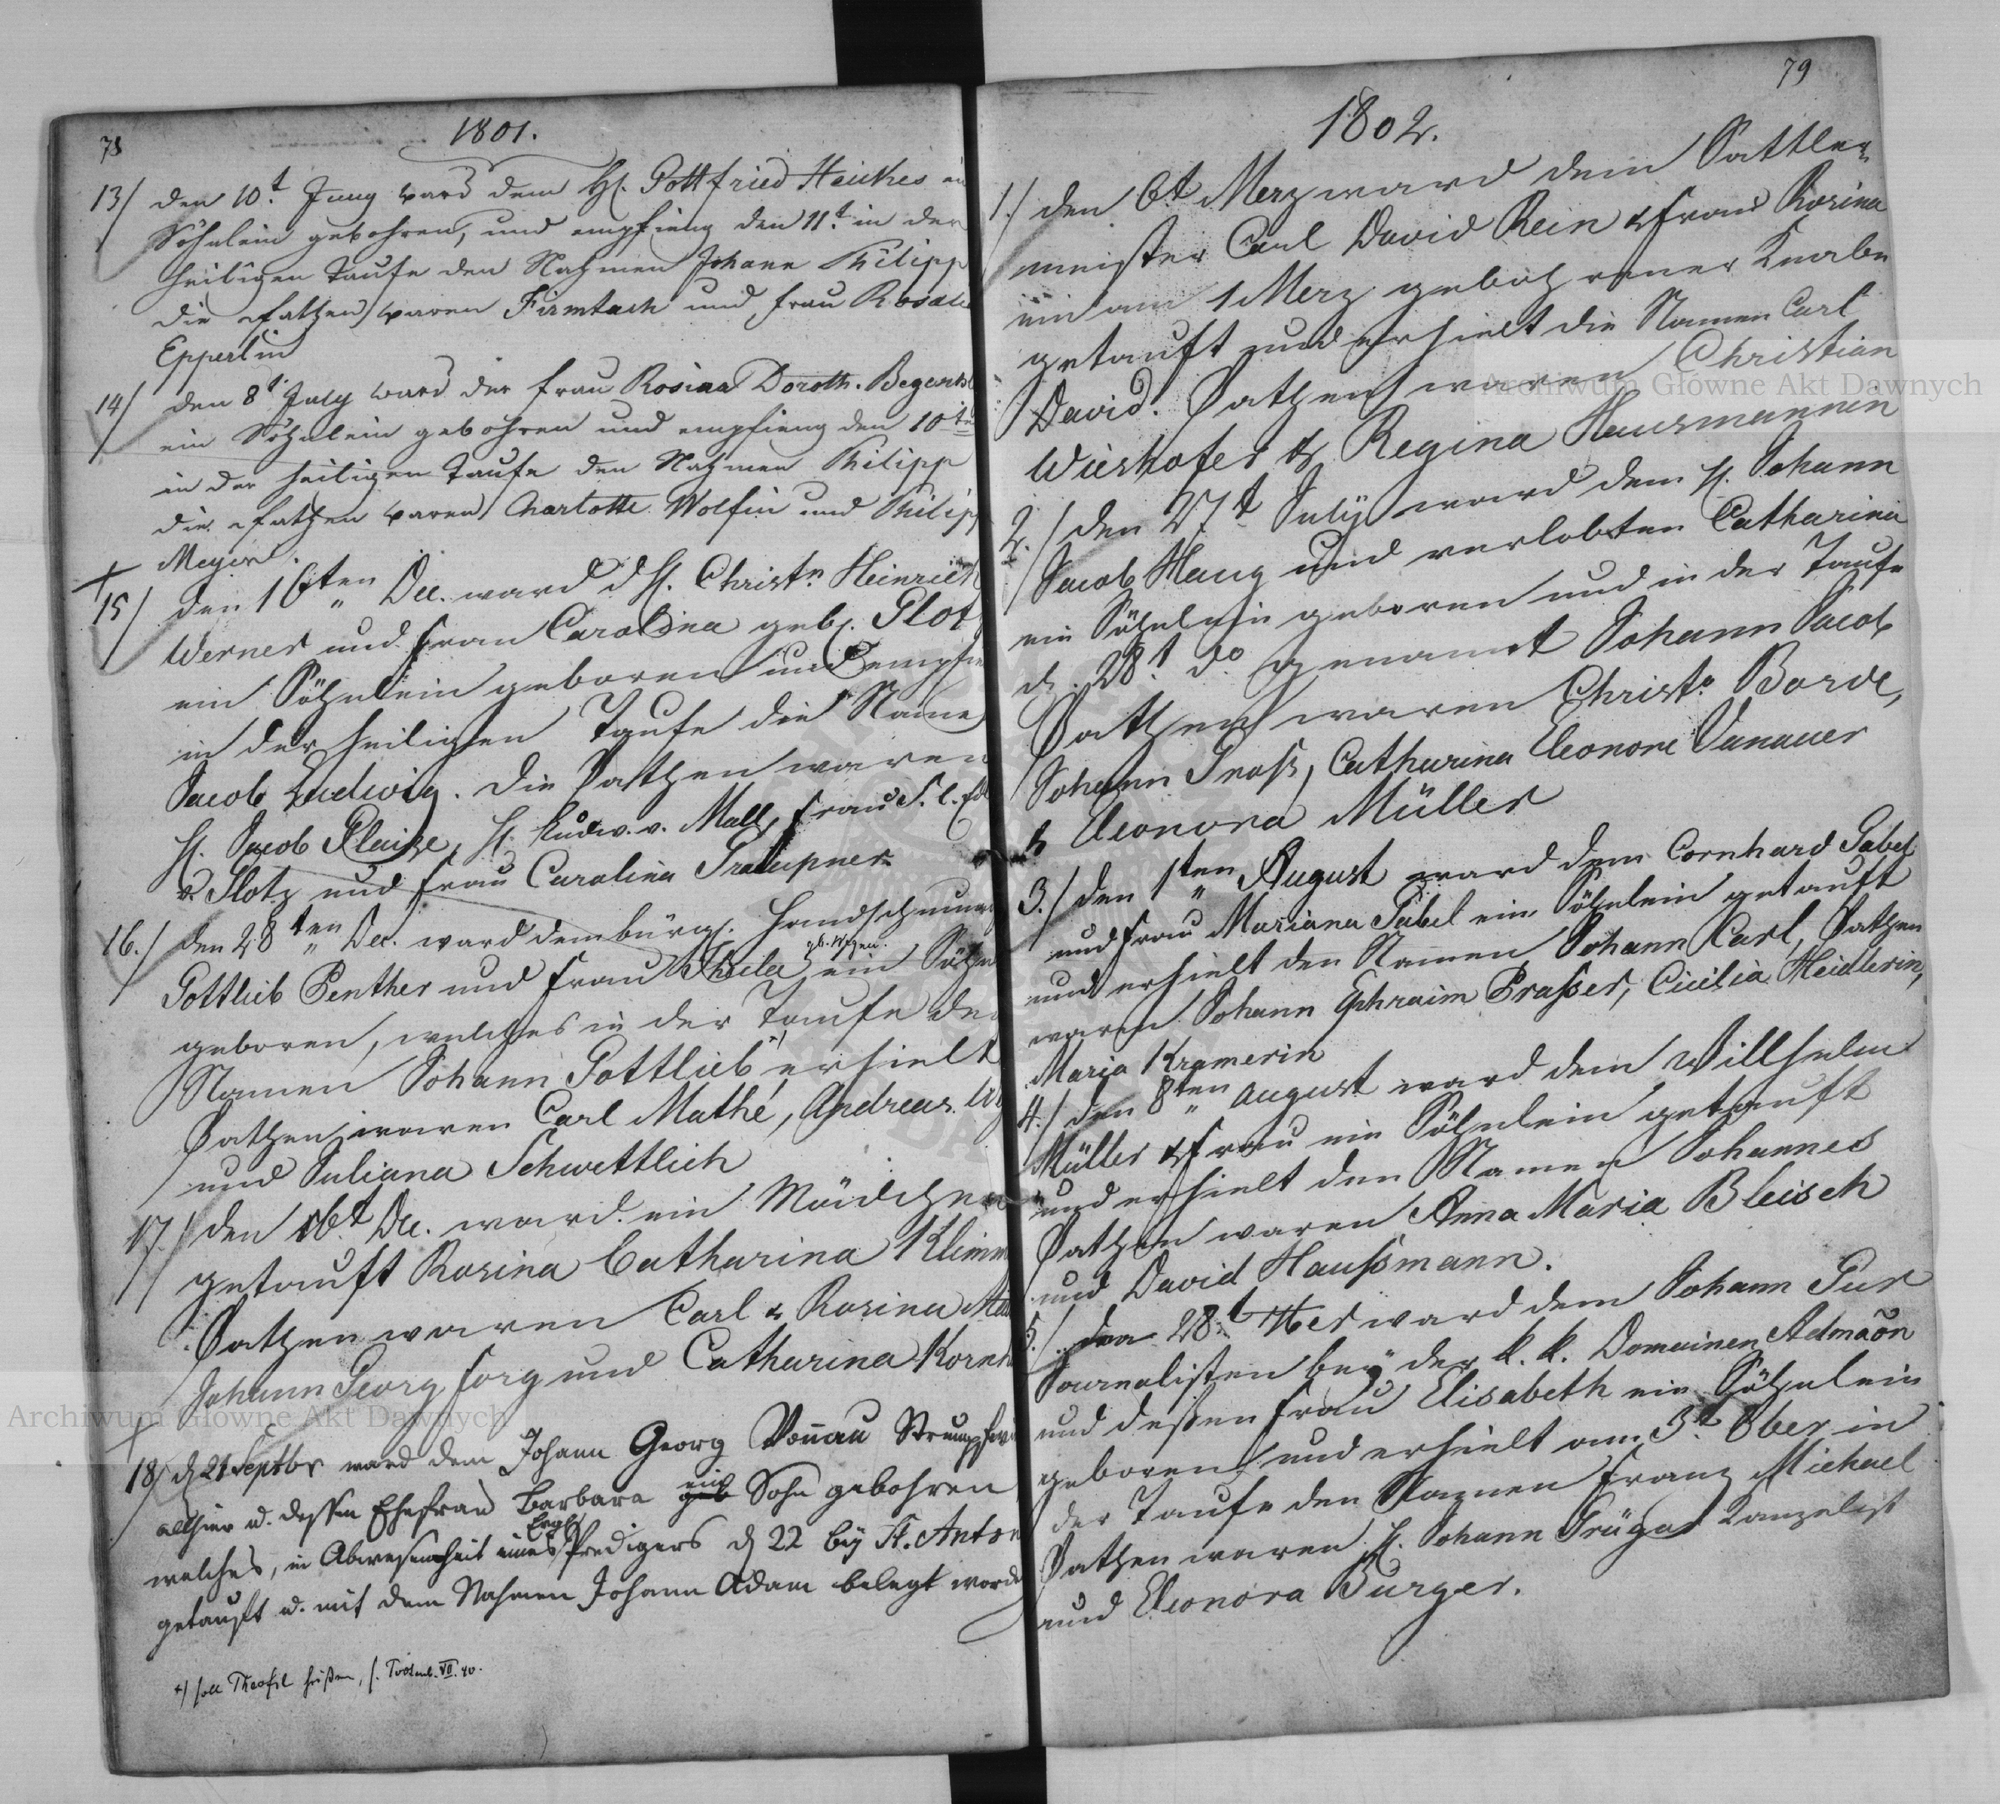 78
1801.
13/ den 10t. Juny ward dem H. Gottfried Heickes ein
Söhnlein gebohren, und empfieng den 11t. in der
heiligen Taufe den Nahmen Johann Philipp
die Pathen waren Firmtach und Frau Rosalia
Epperlin
14/ den 8t. July ward der Frau Rosina Doroth.
ein Söhnlein gebohren und empfieng den 10ten
in der heiligen Taufe den Nahmen Philipp
die Pathen waren Charlotte Wolfin und Philipp
Meyer.
15/ den 16ten Dec. ward d H. Christn. Heinrich
Werner und Frau Carolina geb. Glotz
ein Söhnlein geboren und empfie
in der heiligen Taufe die Name
Jacob Ludwig. Die Pathen waren
H. Jacob Plaize, H. Ludw. v. Mall, Frau
v. Glotz und Frau Carolina Traupner
16./ den 28ten Dec. ward dem bürgl. Handschumach
Gottlieb Penther und Frau Thecla ein Söhn
geboren, welches in der Taufe den
Namen Johann Gottlieb erhielt
Pathen waren Carl Mathé, Andreas
und Juliana Schwettlich
17./ den 16t. Dec. ward ein Mädchen
getauft Rosina Catharina Klimm
Pathen waren Carl & Rosina
Johann Georg Jorg und Catharina Korn
18/ d 21 Septbr ward dem Johann Georg Vonnau Strumpf
allhier u. dessen Ehefrau Barbara ein Sohn gebohren
welches, in Abwesenheit eines Evgl. Predigers d 22 bey St. Anton
getauft u. mit dem Nahmen Johann Adam belegt worden
+/ soll Theofil heißen, s.
79
1802.
1./ den 6t Merz ward dem Sattler
meister Carl David Rein & Frau Rosina
ein am 1 Merz gebohrener Knabe
getauft und erhielt die Namen Carl
David. Pathen waren Christian
Wieshofer & Regina Hausmannin
2./ den 27t July ward dem H. Johann
Jacob Haug und verlobten Catharina
ein Söhnlein geboren und in der Taufe
d. 28t do genannt Johann Jacob
Pathen waren Christo. Borde,
Johann Gross, Catharina Eleonore Vanauer
& Eleonora Müller
3./ den 1ten August ward dem Cornhard Gabel
und Frau Mariana Gabel ein Söhnlein getauft
und erhielt den Namen Johann Carl, Pathen
waren Johann Ephraim Prasser, Cicilia Heidlerin,
Maria Kramerin
4./ den 8ten August ward dem Willhelm
Müller & Frau ein Söhnlein getauft
und erhielt den Namen Johannes
Pathen waren Anna Maria Bleisch
und David Haußmann.
5./ den 28t. 7ber ward dem Johann Gur
Journalisten bey der k. k. Domainen Admãon
und deßen Frau Elisabeth ein Söhnlein
geboren und erhielt am 3t. 8ber in
der Taufe den Namen Franz Michael
Pathen waren H. Johann Krüger Kanzelist
und Eleonora Burger.
Archiwum Główne Akt Dawnych
Archiwum Główne Akt Dawnych